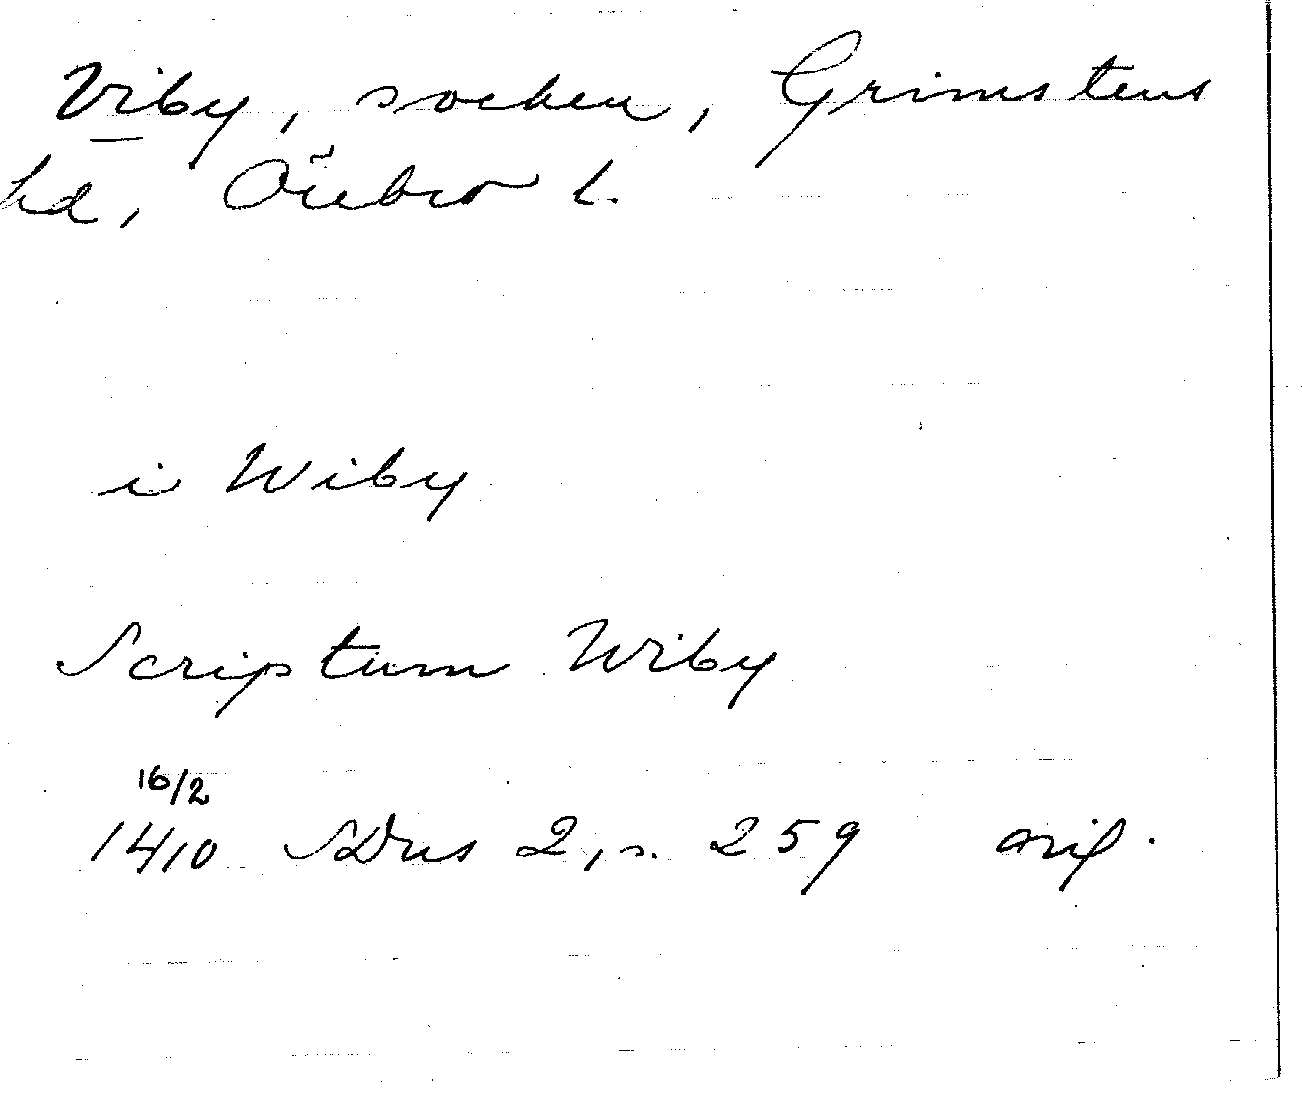 Viby, socken, Grimstens
hd, Örebro l.
i Wiby
Scriptum Wiby
16/2
1410 SDns 2, s. 259 orig.